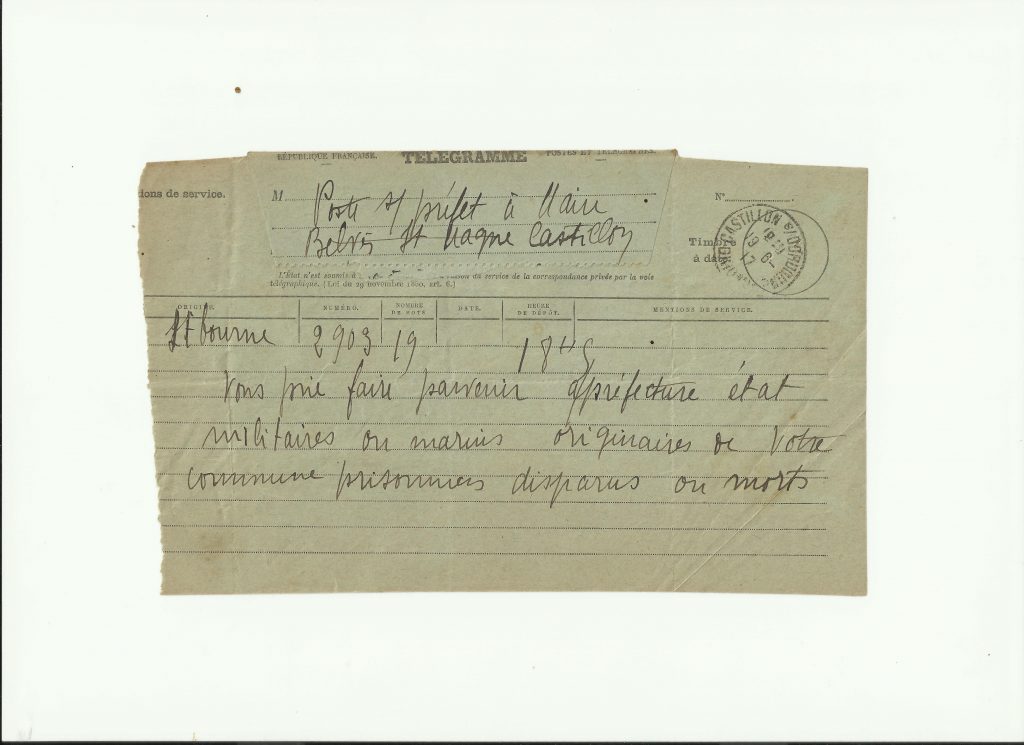 RÉPUBLIQUE FRANÇAISE. TÉLÉGRAMME POSTES ET TÉLÉGRAPHES.
tions de service.
M Poste s/ préfet à Maire
Belvès St Magne Castillon
N°
Timbre
à date
CASTILLON S/DORDOGNE
L'État n'est soumis à
du service de la correspondance privée par la voie
télégraphique. (Loi du 29 novembre 1850, art. 6.)
ORIGINE. NUMÉRO. NOMBRE DE MOTS DATE. HEURE DE DÉPÔT. MENTIONS DE SERVICE.
Libourne 2903 19 1845
Vous prie faire parvenir préfecture état
militaires ou marins originaires de votre
commune prisonniers disparus ou morts